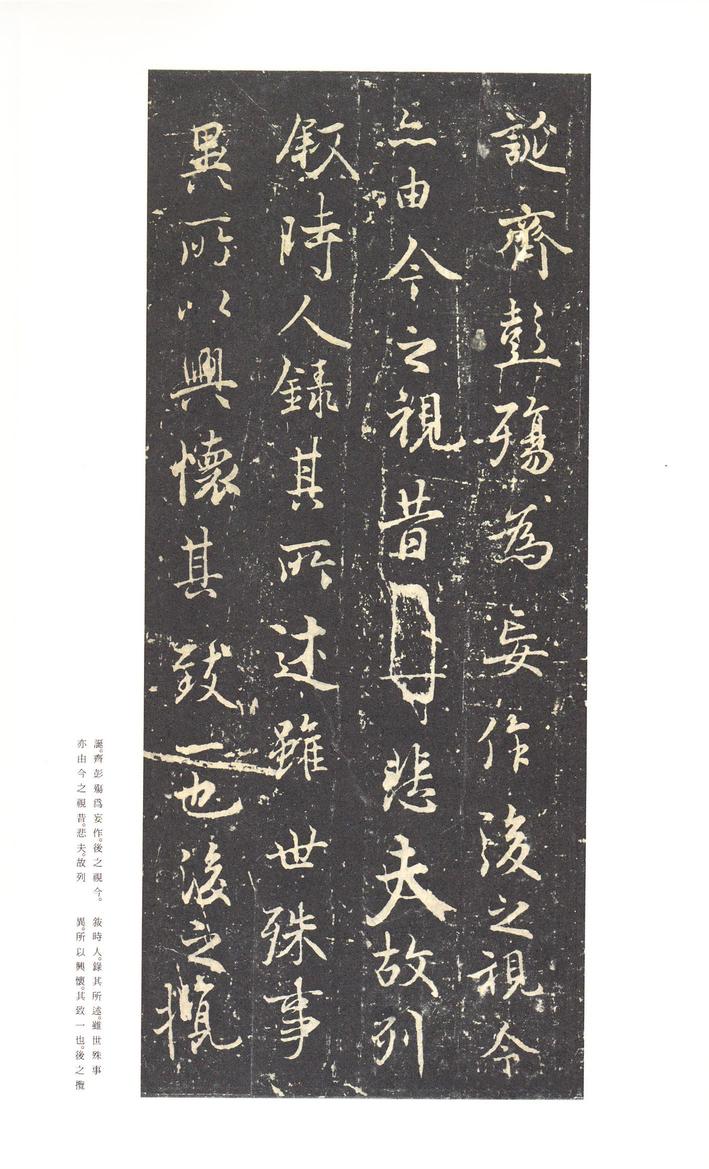 誕齊彭殤為妄作後之視今
亦由今之視昔悲夫故列
敘時人錄其所述雖世殊事
異所以興懷其致一也後之攬
誕。齊彭殤爲妄作。後之視今。
亦由今之視昔。悲夫。故列
敍時人。錄其所述。雖世殊事
異。所以興懷。其致一也。後之攬